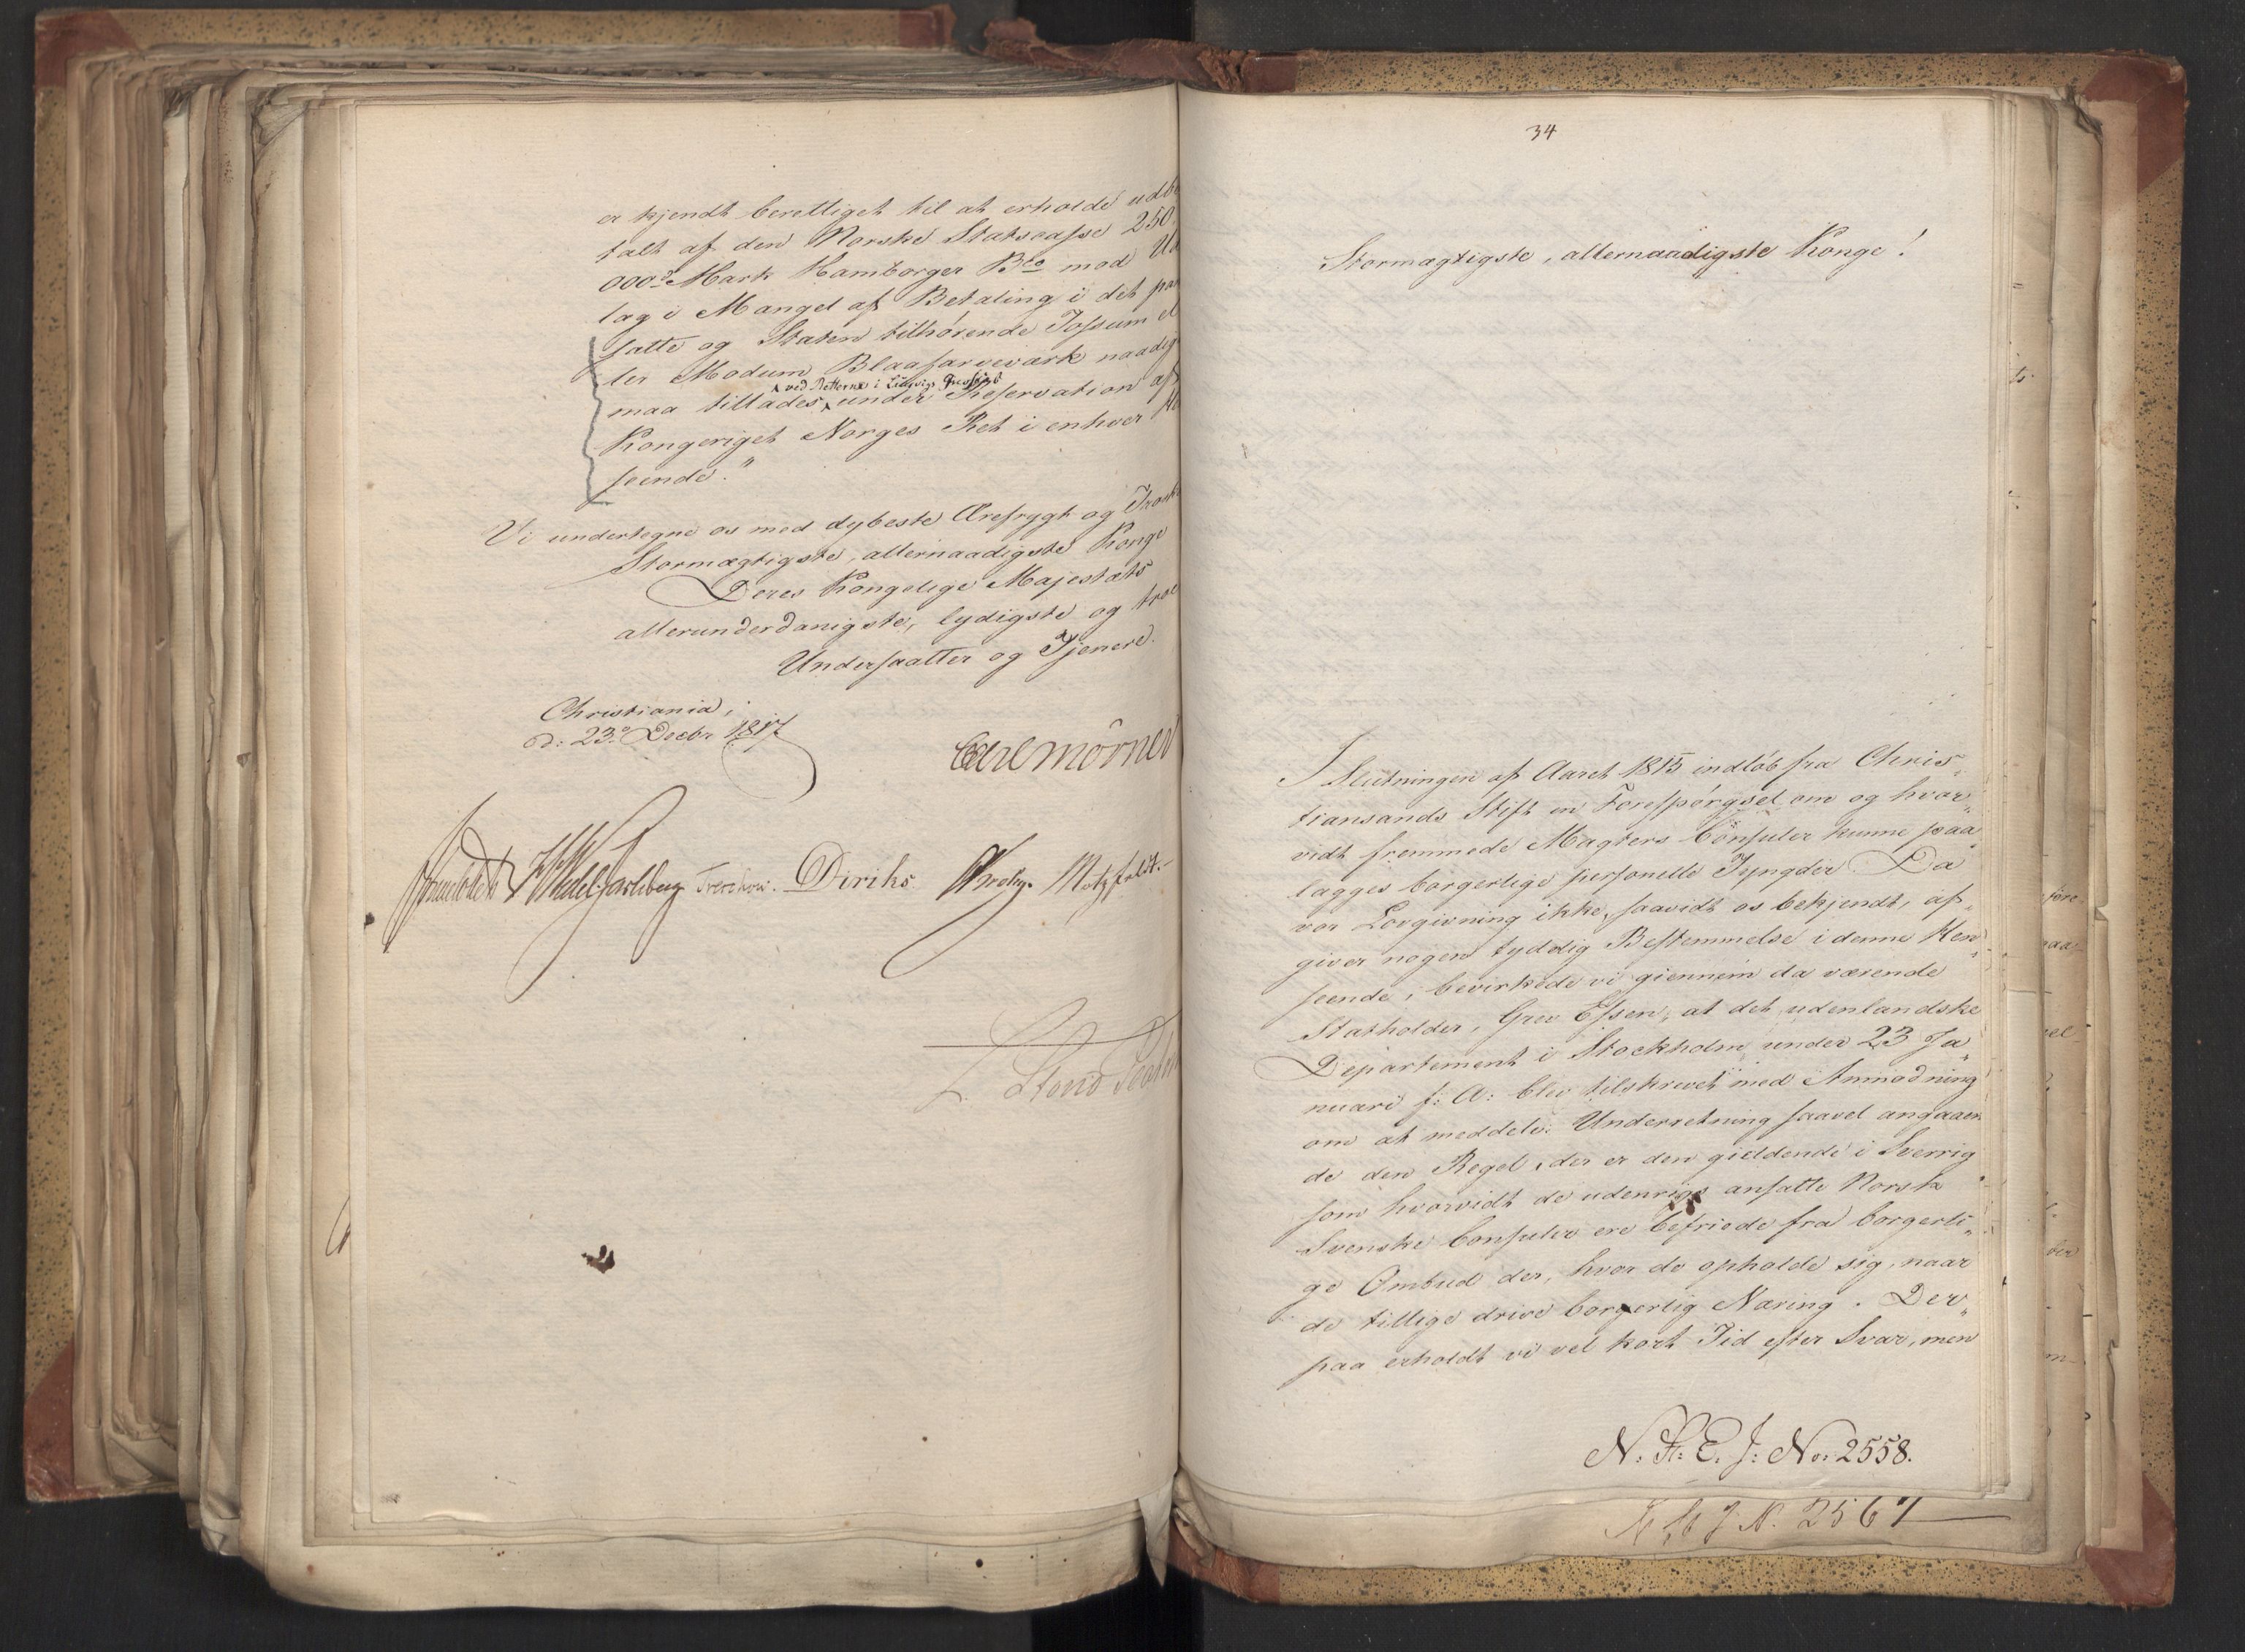 er kjendt berettiget til at erholde udbe
talt af den Norske Statscasse 250,
000de Mark Hamborger Bco mod Ud
læg i Mangel af Betaling i det pant
satte og Staten tilhørende Fossum el
ler Modum Blaafarveværk naadigst
ved Retterne i
maa tillades, under Reservation af
Kongeriget Norges Ret i enhver Hen
seende."
Vi undertegne os med dybeste Ærefrygt og Trosk
Stormægtigste, allernaadigste Konge
Deres Kongelige Majestæts
allerunderdanigste, lydigste og troe
Undersaatter og Tjenere.
Christiania,
d: 23de Decbr 1817
Carl Mörner
Sommerhielm Wedel-Jarlsberg Treschow. Diriks Krohg. Motzfeldt.
L. Stoud Platou
34
Stormægtigste, allernaadigste Konge!
I Slutningen af Aaret 1815 indløb fra Chris„
tiansands Stift en Forespørgsel om og hvor„
vidt fremmede Magters Consuler kunne paa„
lægges borgerlige personelle Tyngder Da
vor Lovgivning ikke, saavidt os bekjendt, af„
giver nogen tydelig Bestemmelse i denne Hen„
seende, bevirkede vi giennem da værende
Statholder, Grev Essen, at det udenlandske
Departement i Stockholm under 23 Ja„
nuari f: A: blev tilskrevet med Anmodning
om at meddele Underretning saavel angaaen
de den Regel, der er den gieldende i Sverrig
som hvorvidt de udenrigs ansatte Norsk
Svenske Consuler ere befriede fra borgerli„
ge Ombud der, hvor de opholde sig, naar
de tillige drive borgerlig Næring. Der„
paa erholdt vi vel kort Tid efter Svar, men
N: St: E. J: No: 2558.
J N. 2567